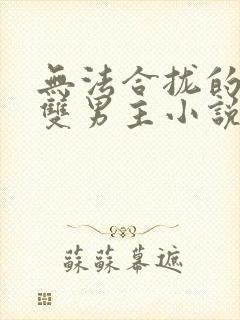 無法合拢的
雙男主小說
蘇蘇幕遮